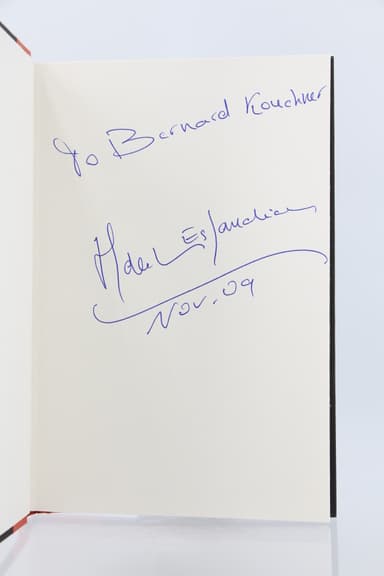 To Bernard Kouchner
Hale Esfandiari
Nov. 09